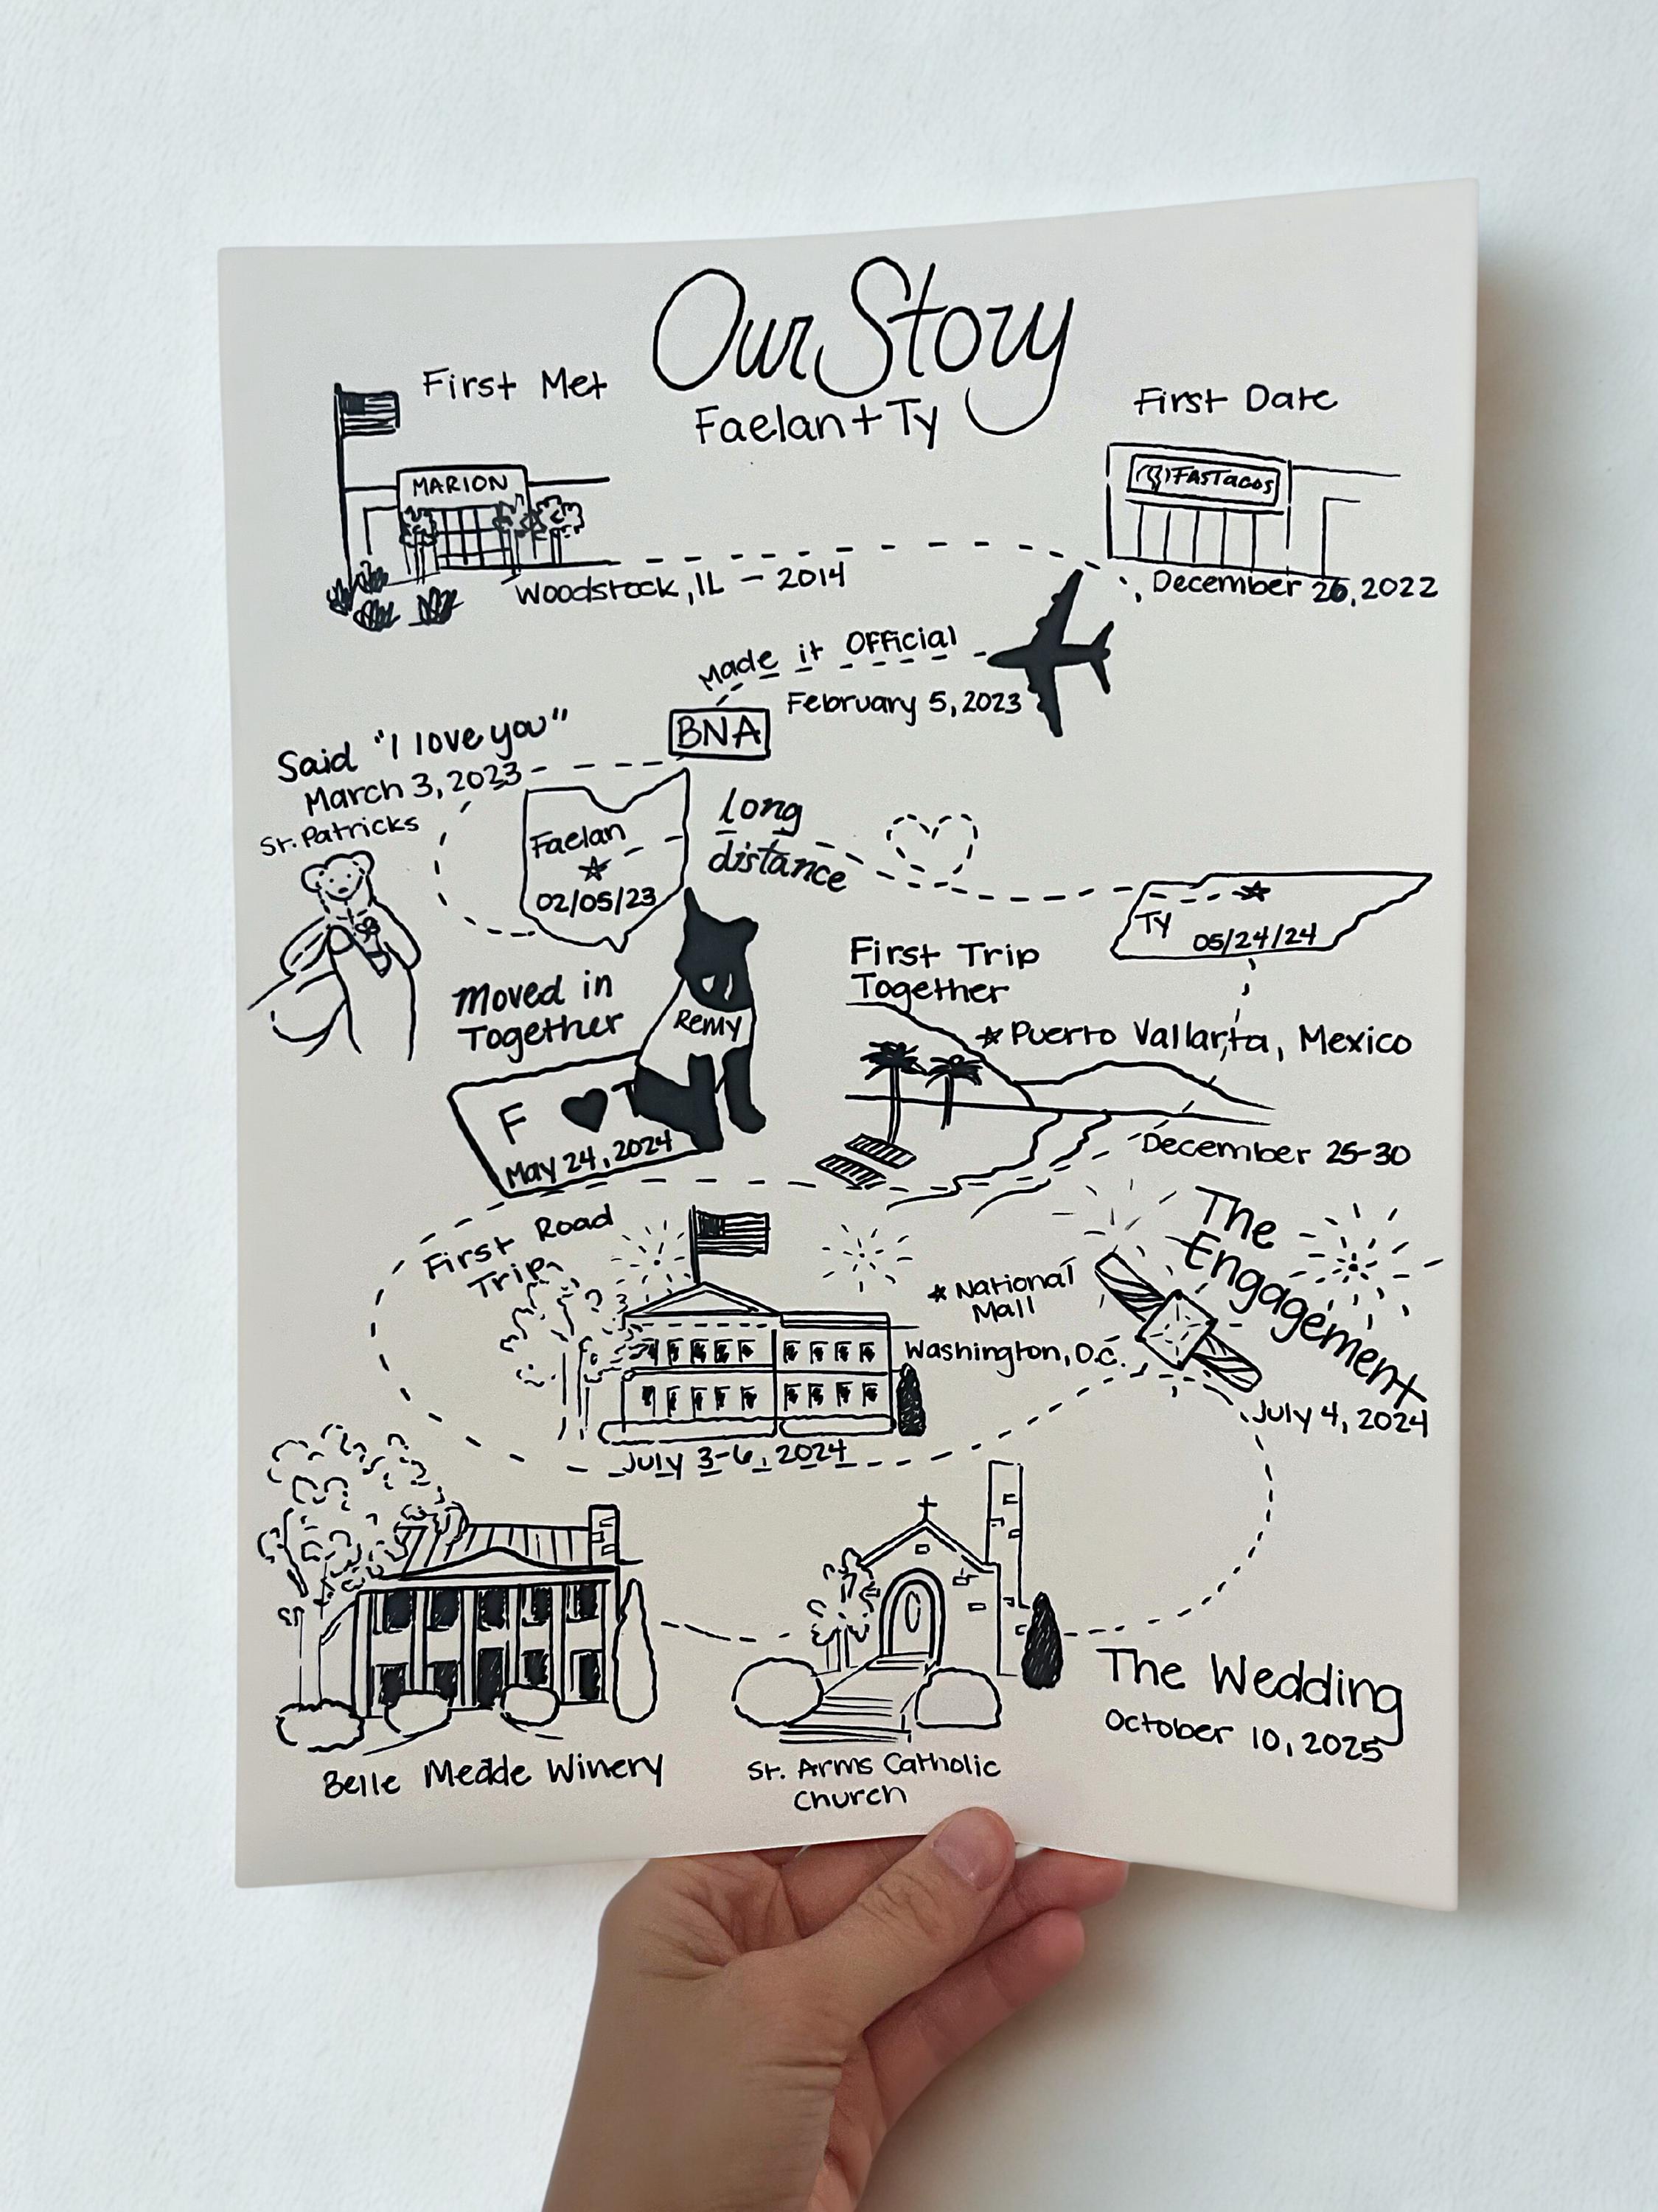 Our Story
Faelan + Ty
First Met
MARION
Woodstock, IL - 2014
First Date
FASTacos
December 26, 2022
Made it Official
February 5, 2023
BNA
Said "I love you"
March 3, 2023
St. Patricks
Faelan
02/05/23
long
distance
Ty
05/24/24
Moved in
Together
Remy
F ♥ T
May 24, 2024
First Trip
Together
Puerto Vallarta, Mexico
December 25-30
First Road
Trip
National
Mall
Washington, D.C.
July 3-6, 2024
The
Engagement
July 4, 2024
The Wedding
October 10, 2025
St. Arms Catholic
Church
Belle Meade Winery